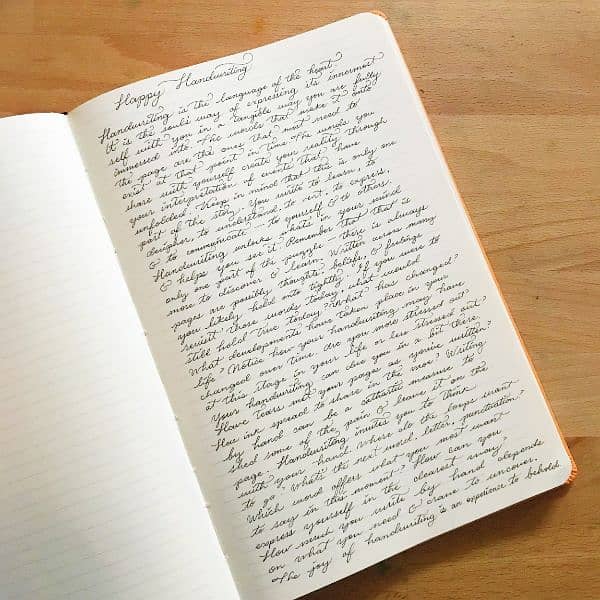 Happy Handwriting
Handwriting is the language of the heart.
It is the soul's way of expressing its innermost
self with you in a tangible way you are fully
immersed into. The words that make it onto
the page are the ones that most need to
exist at that point in time. The words you
share with yourself create your reality through
your interpretation of events that have
unfolded. Keep in mind that this is only one
part of the story. You write to learn, to
decipher, to understand, to vent, to express,
& to communicate – to yourself & to others.
Handwriting unlocks what's in your mind
& helps you see it. Remember that that is
only one part of the puzzle – there is always
more to discover & learn. Written across many
pages are possibly thoughts, beliefs, & feelings
you likely hold onto tightly. If you were to
revisit those words today, what would
still hold true today? What has changed?
What developments have taken place in your
life? Notice how your handwriting may have
changed over time. Are you more stressed out
at this stage in your life or less stressed out?
Your handwriting can clue you in a bit there.
Have tears met your pages as you've written?
Has ink spread to share in the mess? Writing
by hand can be a cathartic measure to
shed some of the pain & leave it on the
page. Handwriting invites you to think
with your hand. Where do the loops want
to go? What's the next word, letter, punctuation?
Which word offers what you most want
to say in this moment? How can you
express yourself in the clearest way?
How much you write by hand depends
on what you need & crave to uncover.
The joy of handwriting is an experience to behold.